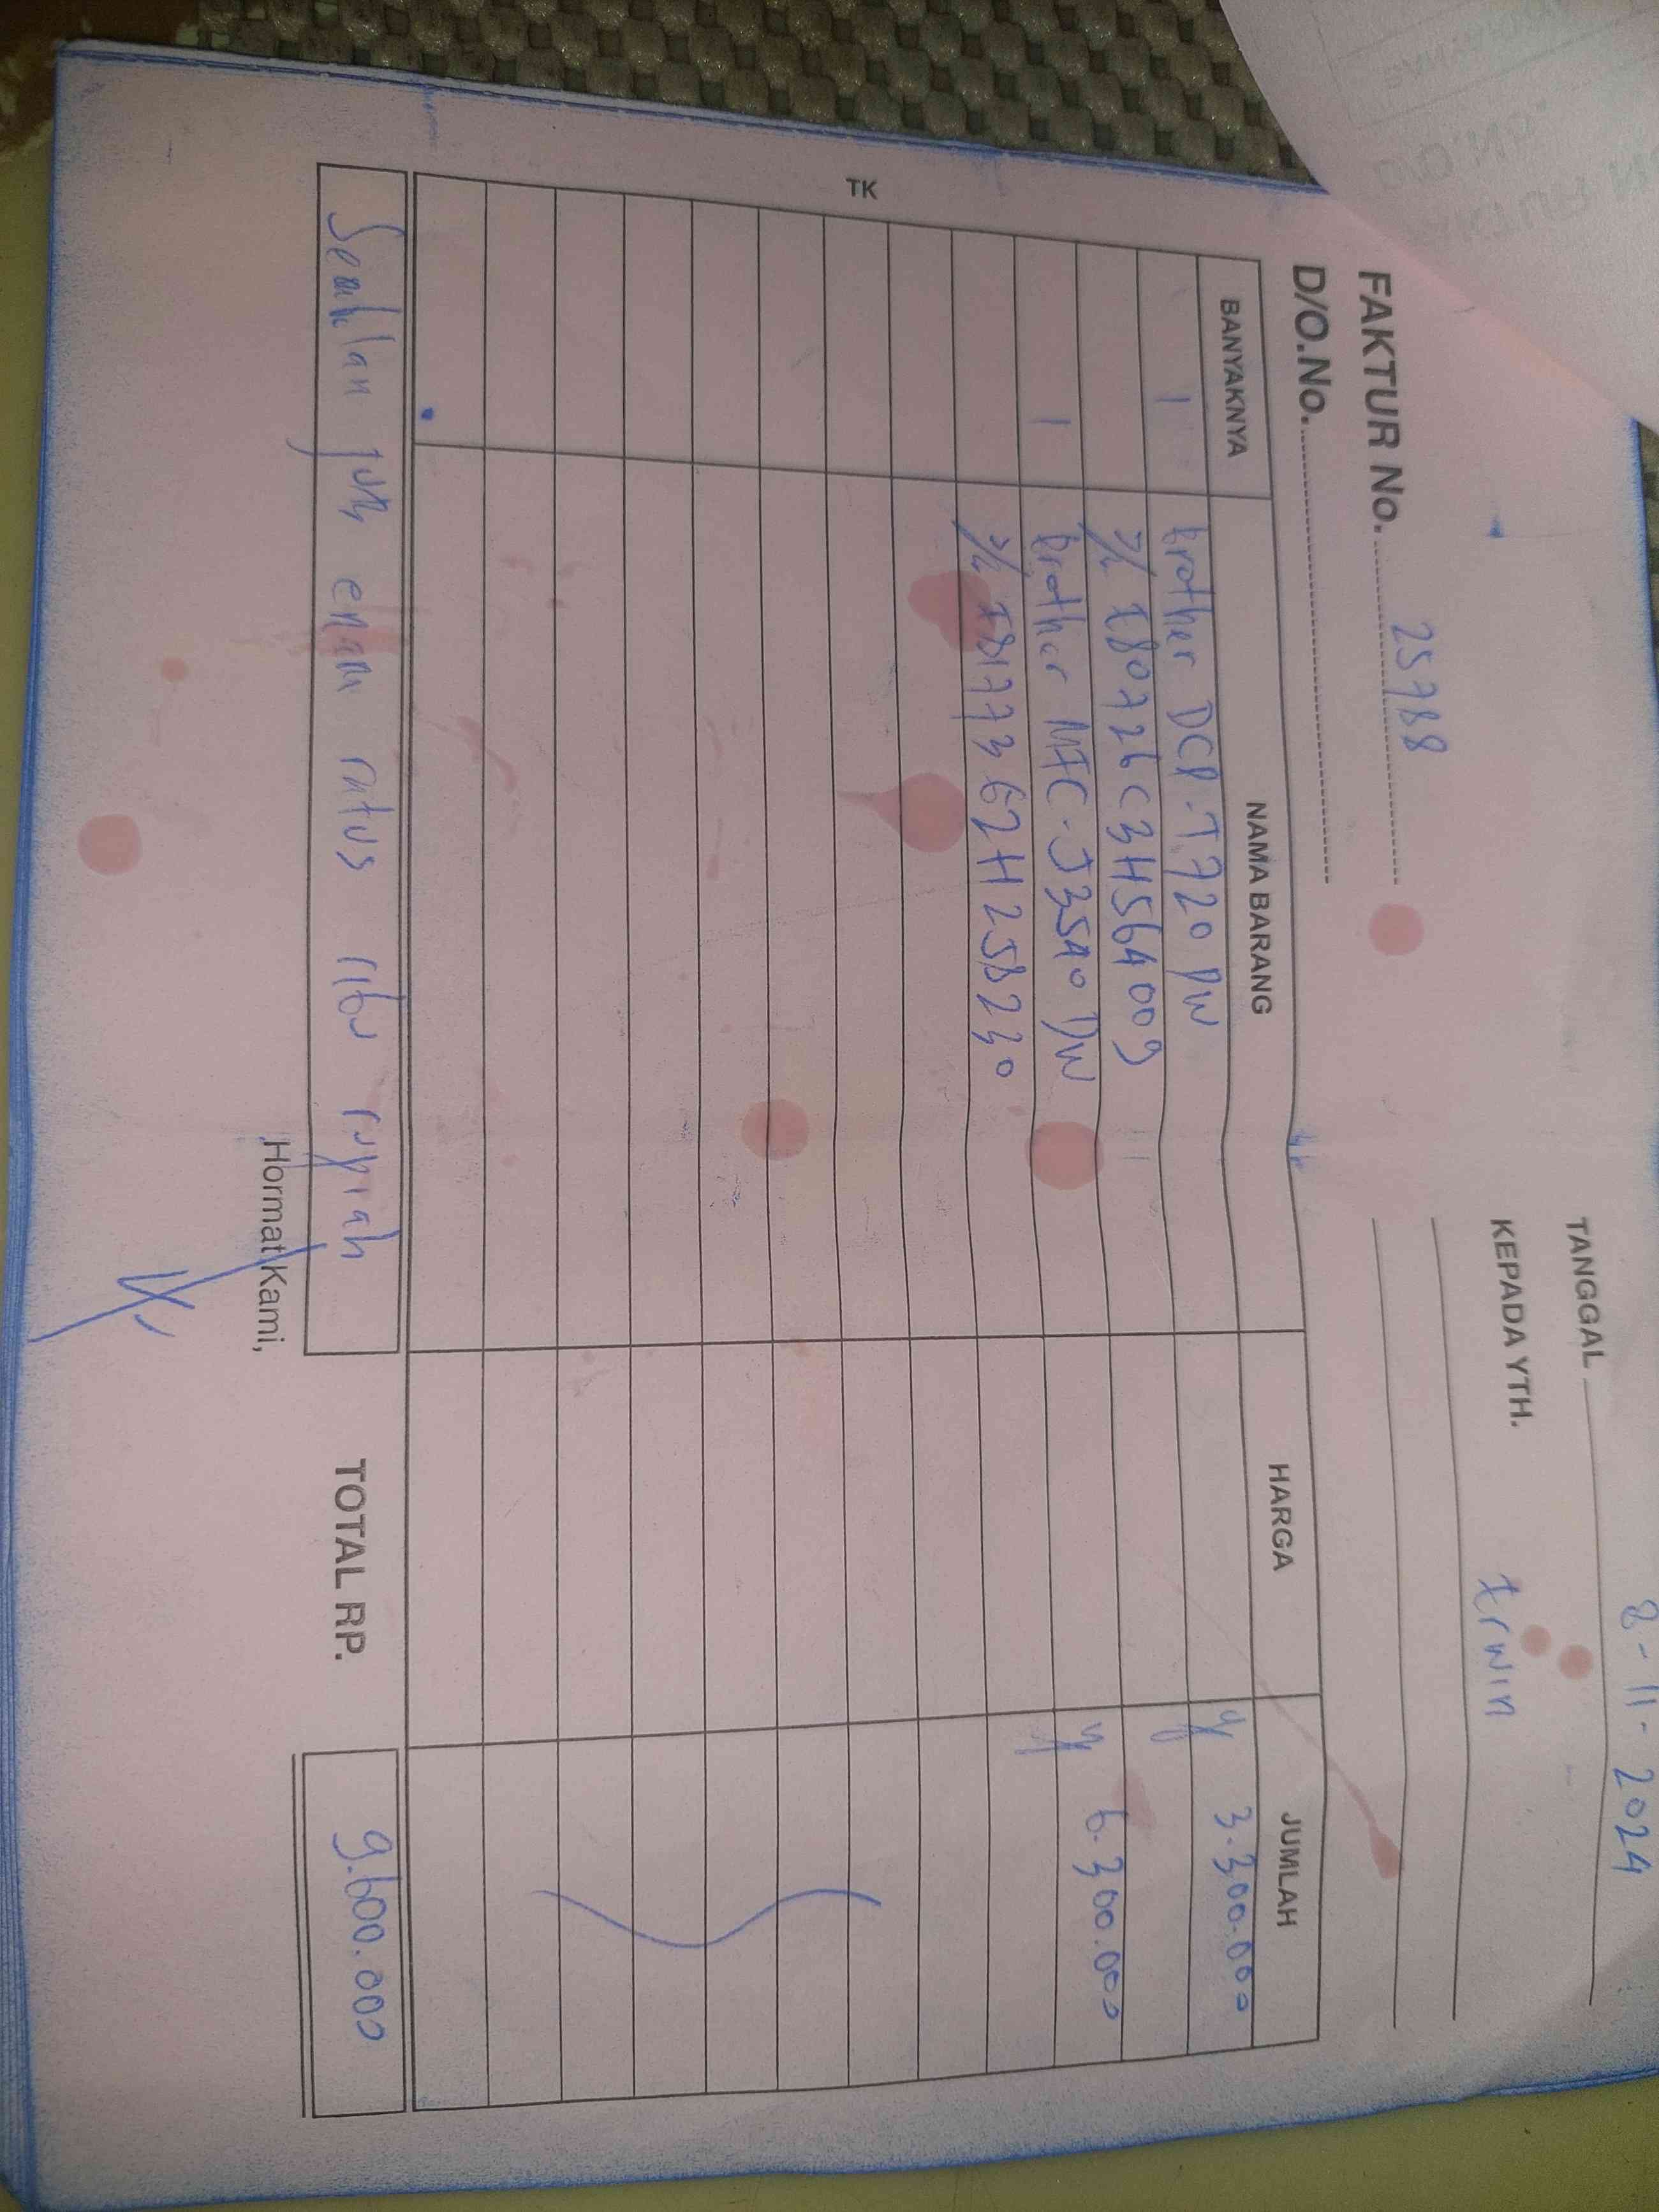 TANGGAL 8-11-2024
KEPADA YTH. Erwin
FAKTUR No. 25788
D/O.No.
BANYAKNYA NAMA BARANG HARGA JUMLAH
1 Brother DCP-T720 DW 3.300.000
E80726C3H564009
1 Brother MFC-J3540 DW 6.300.000
TK
Sembilan juta enam ratus ribu rupiah TOTAL RP. 9.600.000
Hormat Kami,